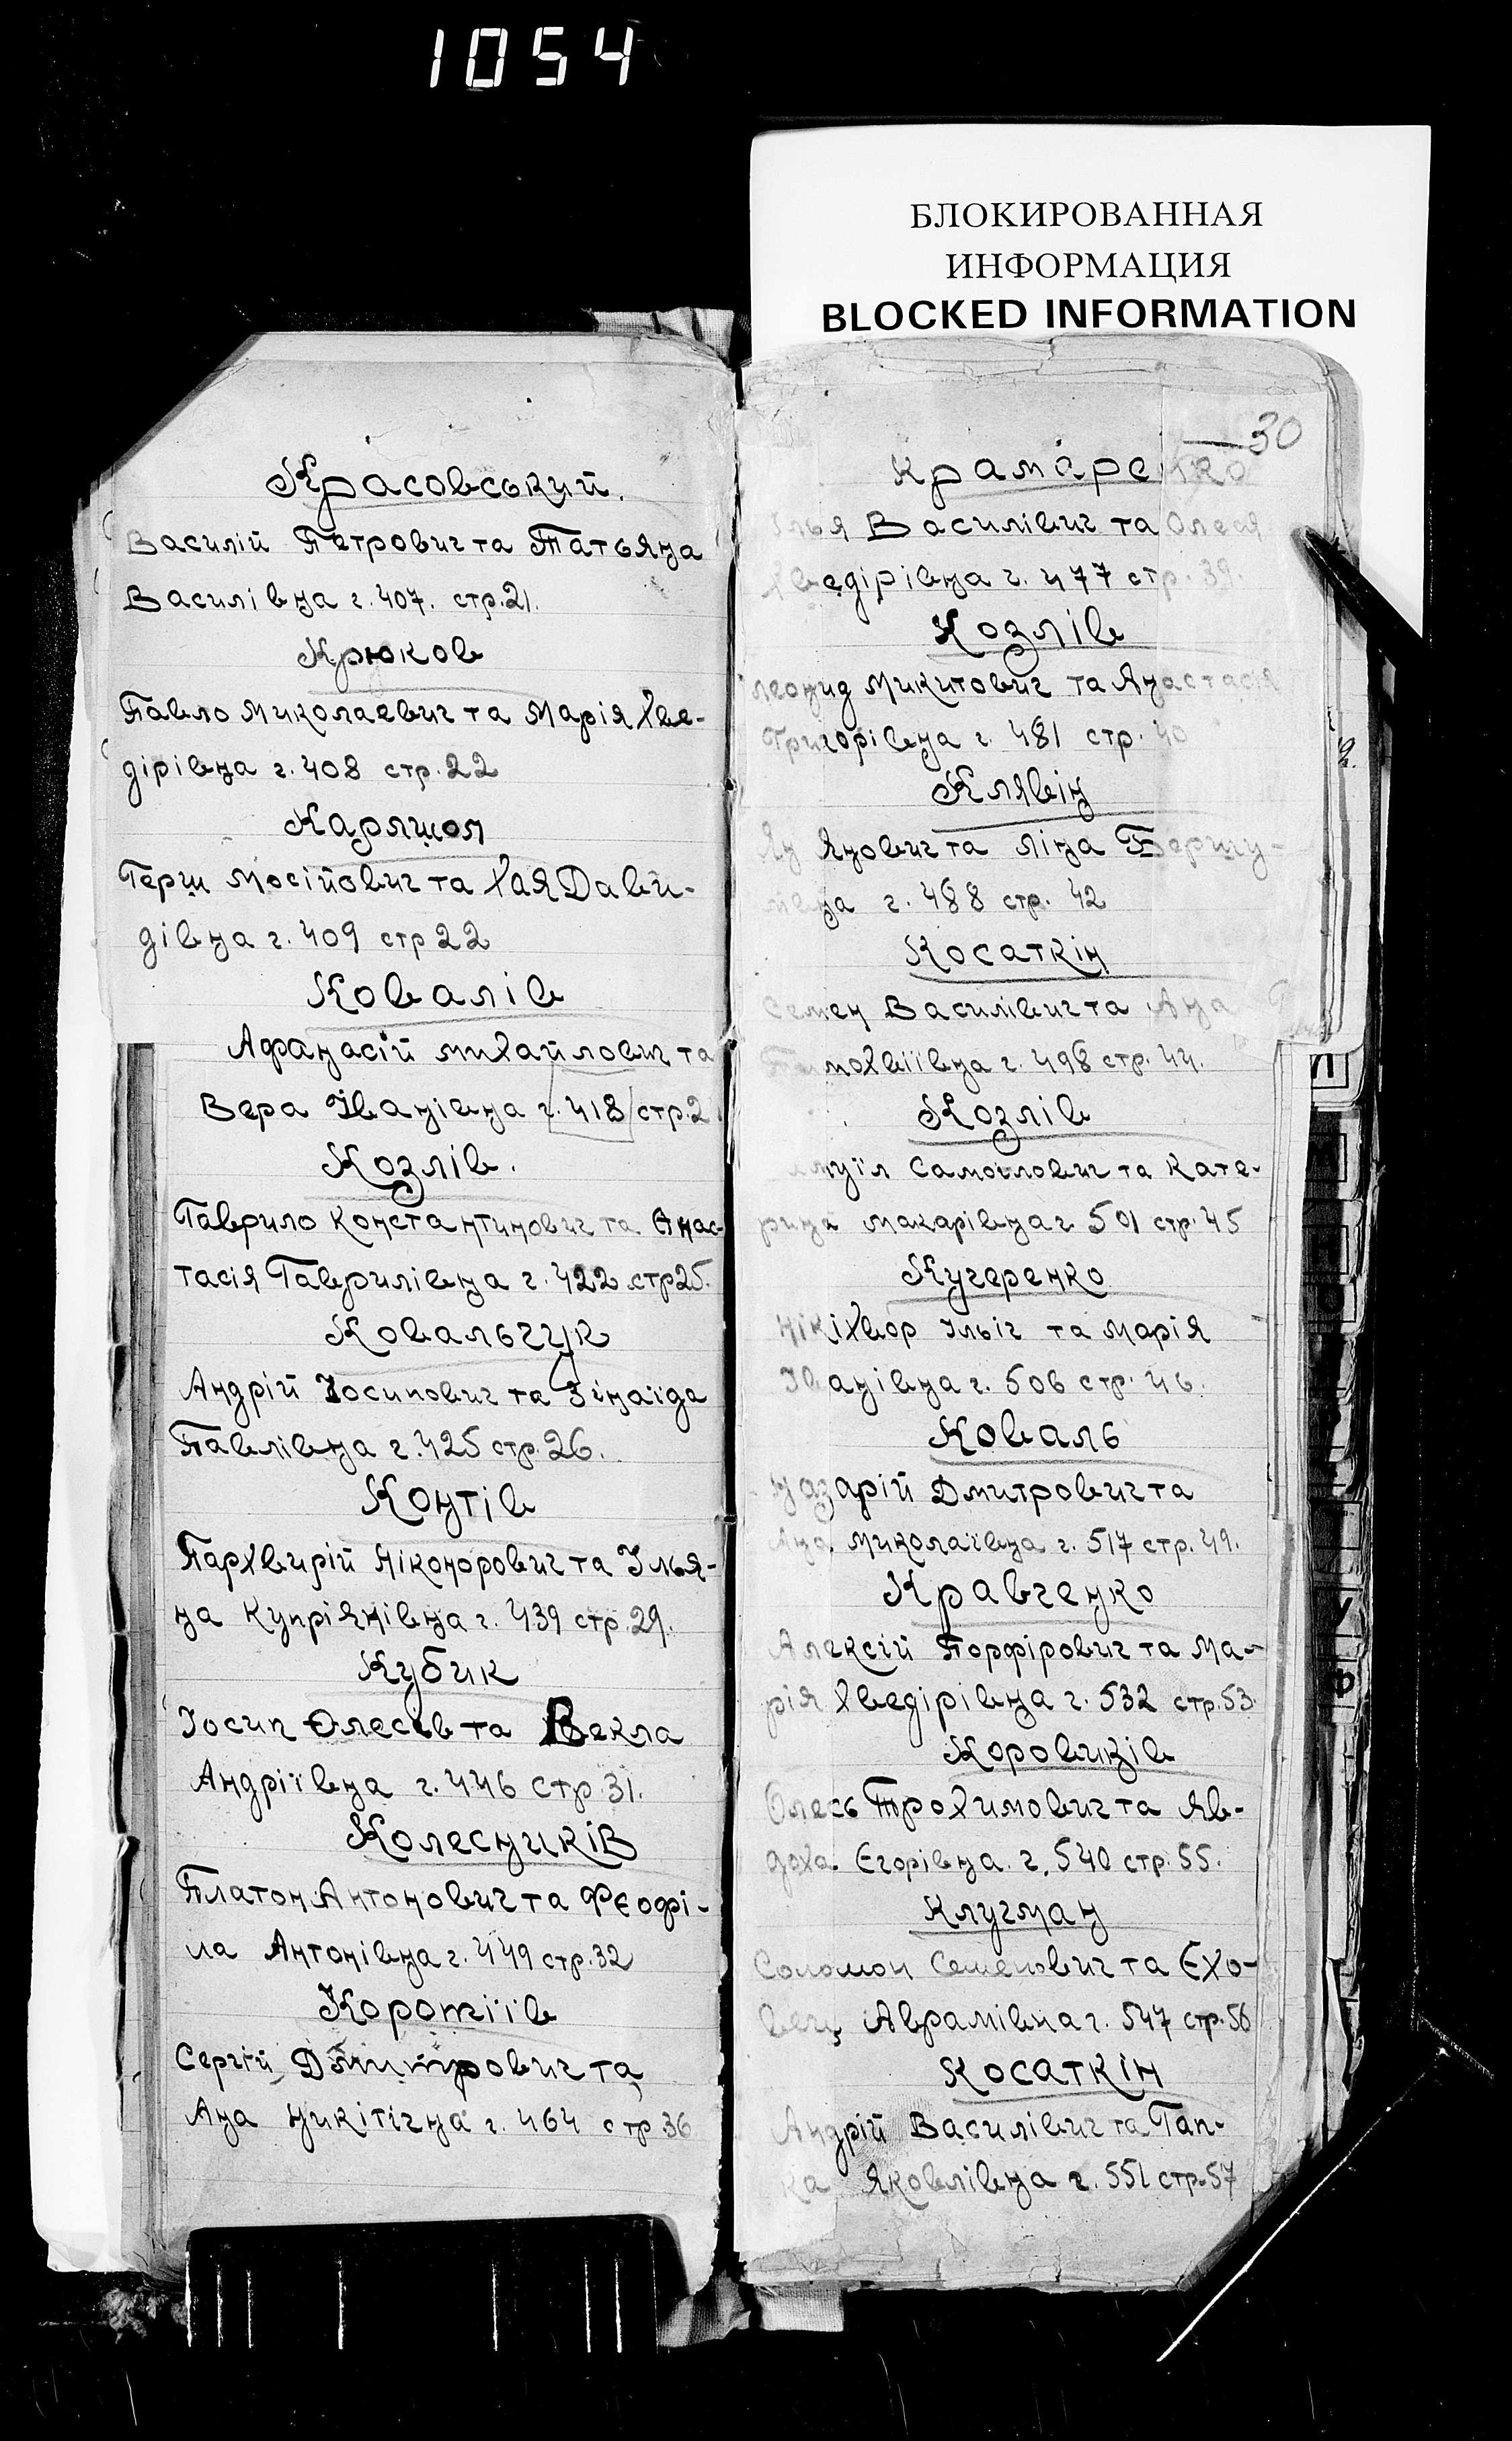 1054
БЛОКИРОВАННАЯ
ИНФОРМАЦИЯ
BLOCKED INFORMATION
Красовський.
Василій Петрович та Татьяна
Василівна ч. 407. стр. 21.
Крюков
Павло Миколаевич та Марія Хве-
дірівна ч. 408 стр. 22
Карлшол
Герш Мосійович та Хая Дави-
дівна ч. 409 стр 22
Ковалів
Афанасій Михайлович та
Вера Іванівна ч. 418 стр. 2
Козлів.
Гаврило Константинович та Анас-
тасія Гаврилівна ч. 422 стр 25.
Ковальчук
Андрій Йосипович та Зінаїда
Павлівна ч. 425 стр. 26.
Контів
Пархвирій Ніконорович та Улья-
на Купріянівна ч. 439 стр. 29.
Кубик
Йосип Олесів та Векла
Андріївна ч. 446 стр. 31.
Колесників
Платон Антонович та Феофі-
ла Антонівна ч. 449 стр. 32
Коротіїв
Сергій Дмитрович та
Ана Никітічна ч. 464 стр 36
30
Крамаренко
Ілья Василівич та Олеся
Хведірівна ч. 477 стр. 39.
Козлів
Леонид Микитович та Анастасія
Григорівна ч. 481 стр. 40
Клявін
Ян Янович та Ліна
ч. 488 стр. 42
Косаткін
Семен Василівич та Ана
ч. 498 стр. 44.
Козлів
Самоілович та Кате-
рина Макарівна ч. 501 стр. 45
Кучеренко
Нікіхвор Ільіч та Марія
Іванівна ч. 506 стр. 46.
Коваль
Назарій Дмитрович та
Ана Миколаївна ч. 517 стр. 49.
Кравченко
Алексій Порфірович та Ма-
рія Хведірівна ч. 532 стр. 53.
Коровиків
Олесь Трохимович та Яв-
доха Єгорівна. ч. 540 стр. 55.
Клугман
Соломон Семенович та Єхо-
Аврамівна ч. 547 стр. 56
Косаткін
Андрій Василівич та Гап-
ка Яковлівна ч. 551 стр. 57